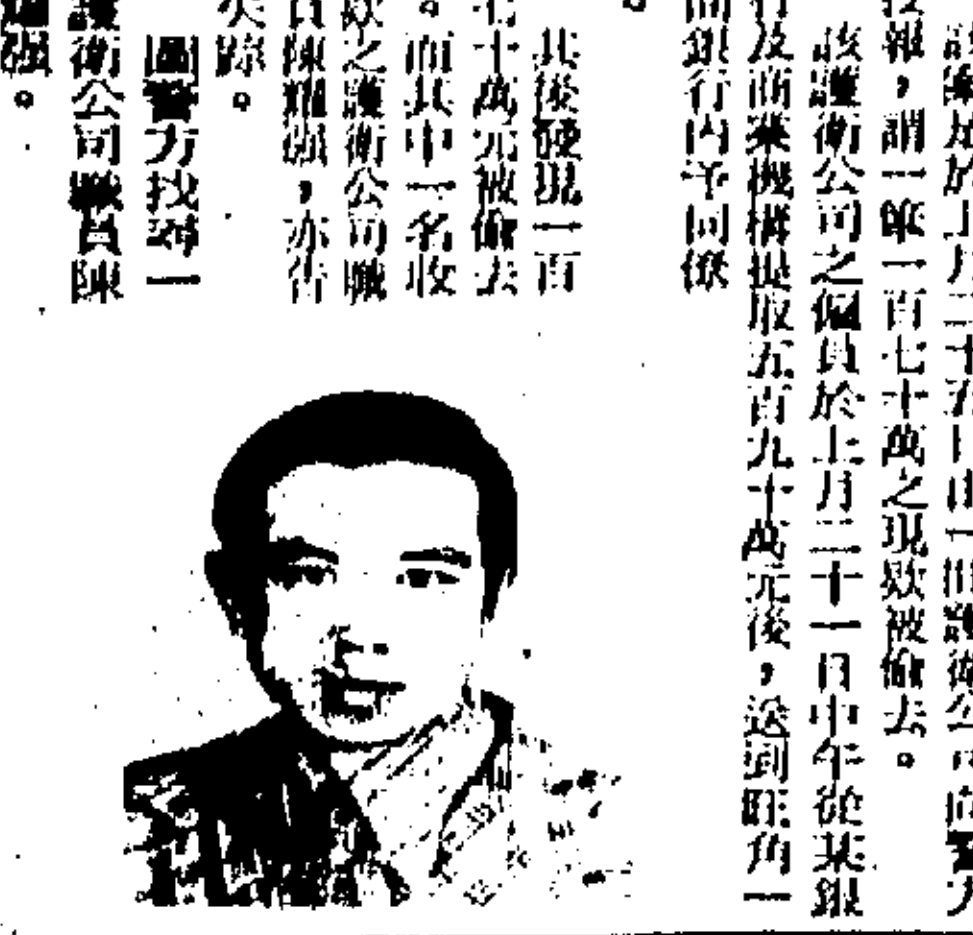 該案於上月二十五日由一間護衛公司向警方
報,謂一筆一百七十萬之現欵被偷去。
該護衛公司之僱員於上月二十一日中午從某銀
行及商業機構提取五百九十萬元後,送到旺角一
間銀行內予同僚
。
其後發現一百
七十萬元被偷去
。而其中一名收
欵之護衛公司職
員陳耀強,亦告
失踪。
圖警方找尋一
護衛公司職員陳
耀強。